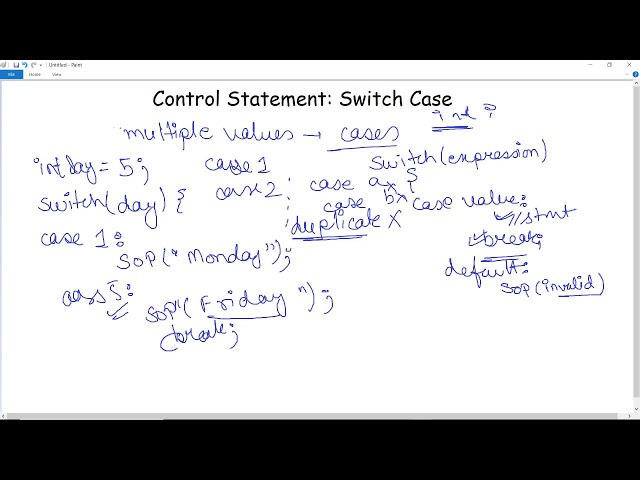 Untitled - Paint
File Home View
Control Statement: Switch Case
multiple values → cases
int ?
int day = 5;
switch(day) {
case 1:
SOP("Monday");
case 5:
SOP"(Friday");
break;
case 1
case 2
case a x
case b x
duplicate X
switch(expression)
{
case value:
//stmt
break;
default:
SOP(invalid)